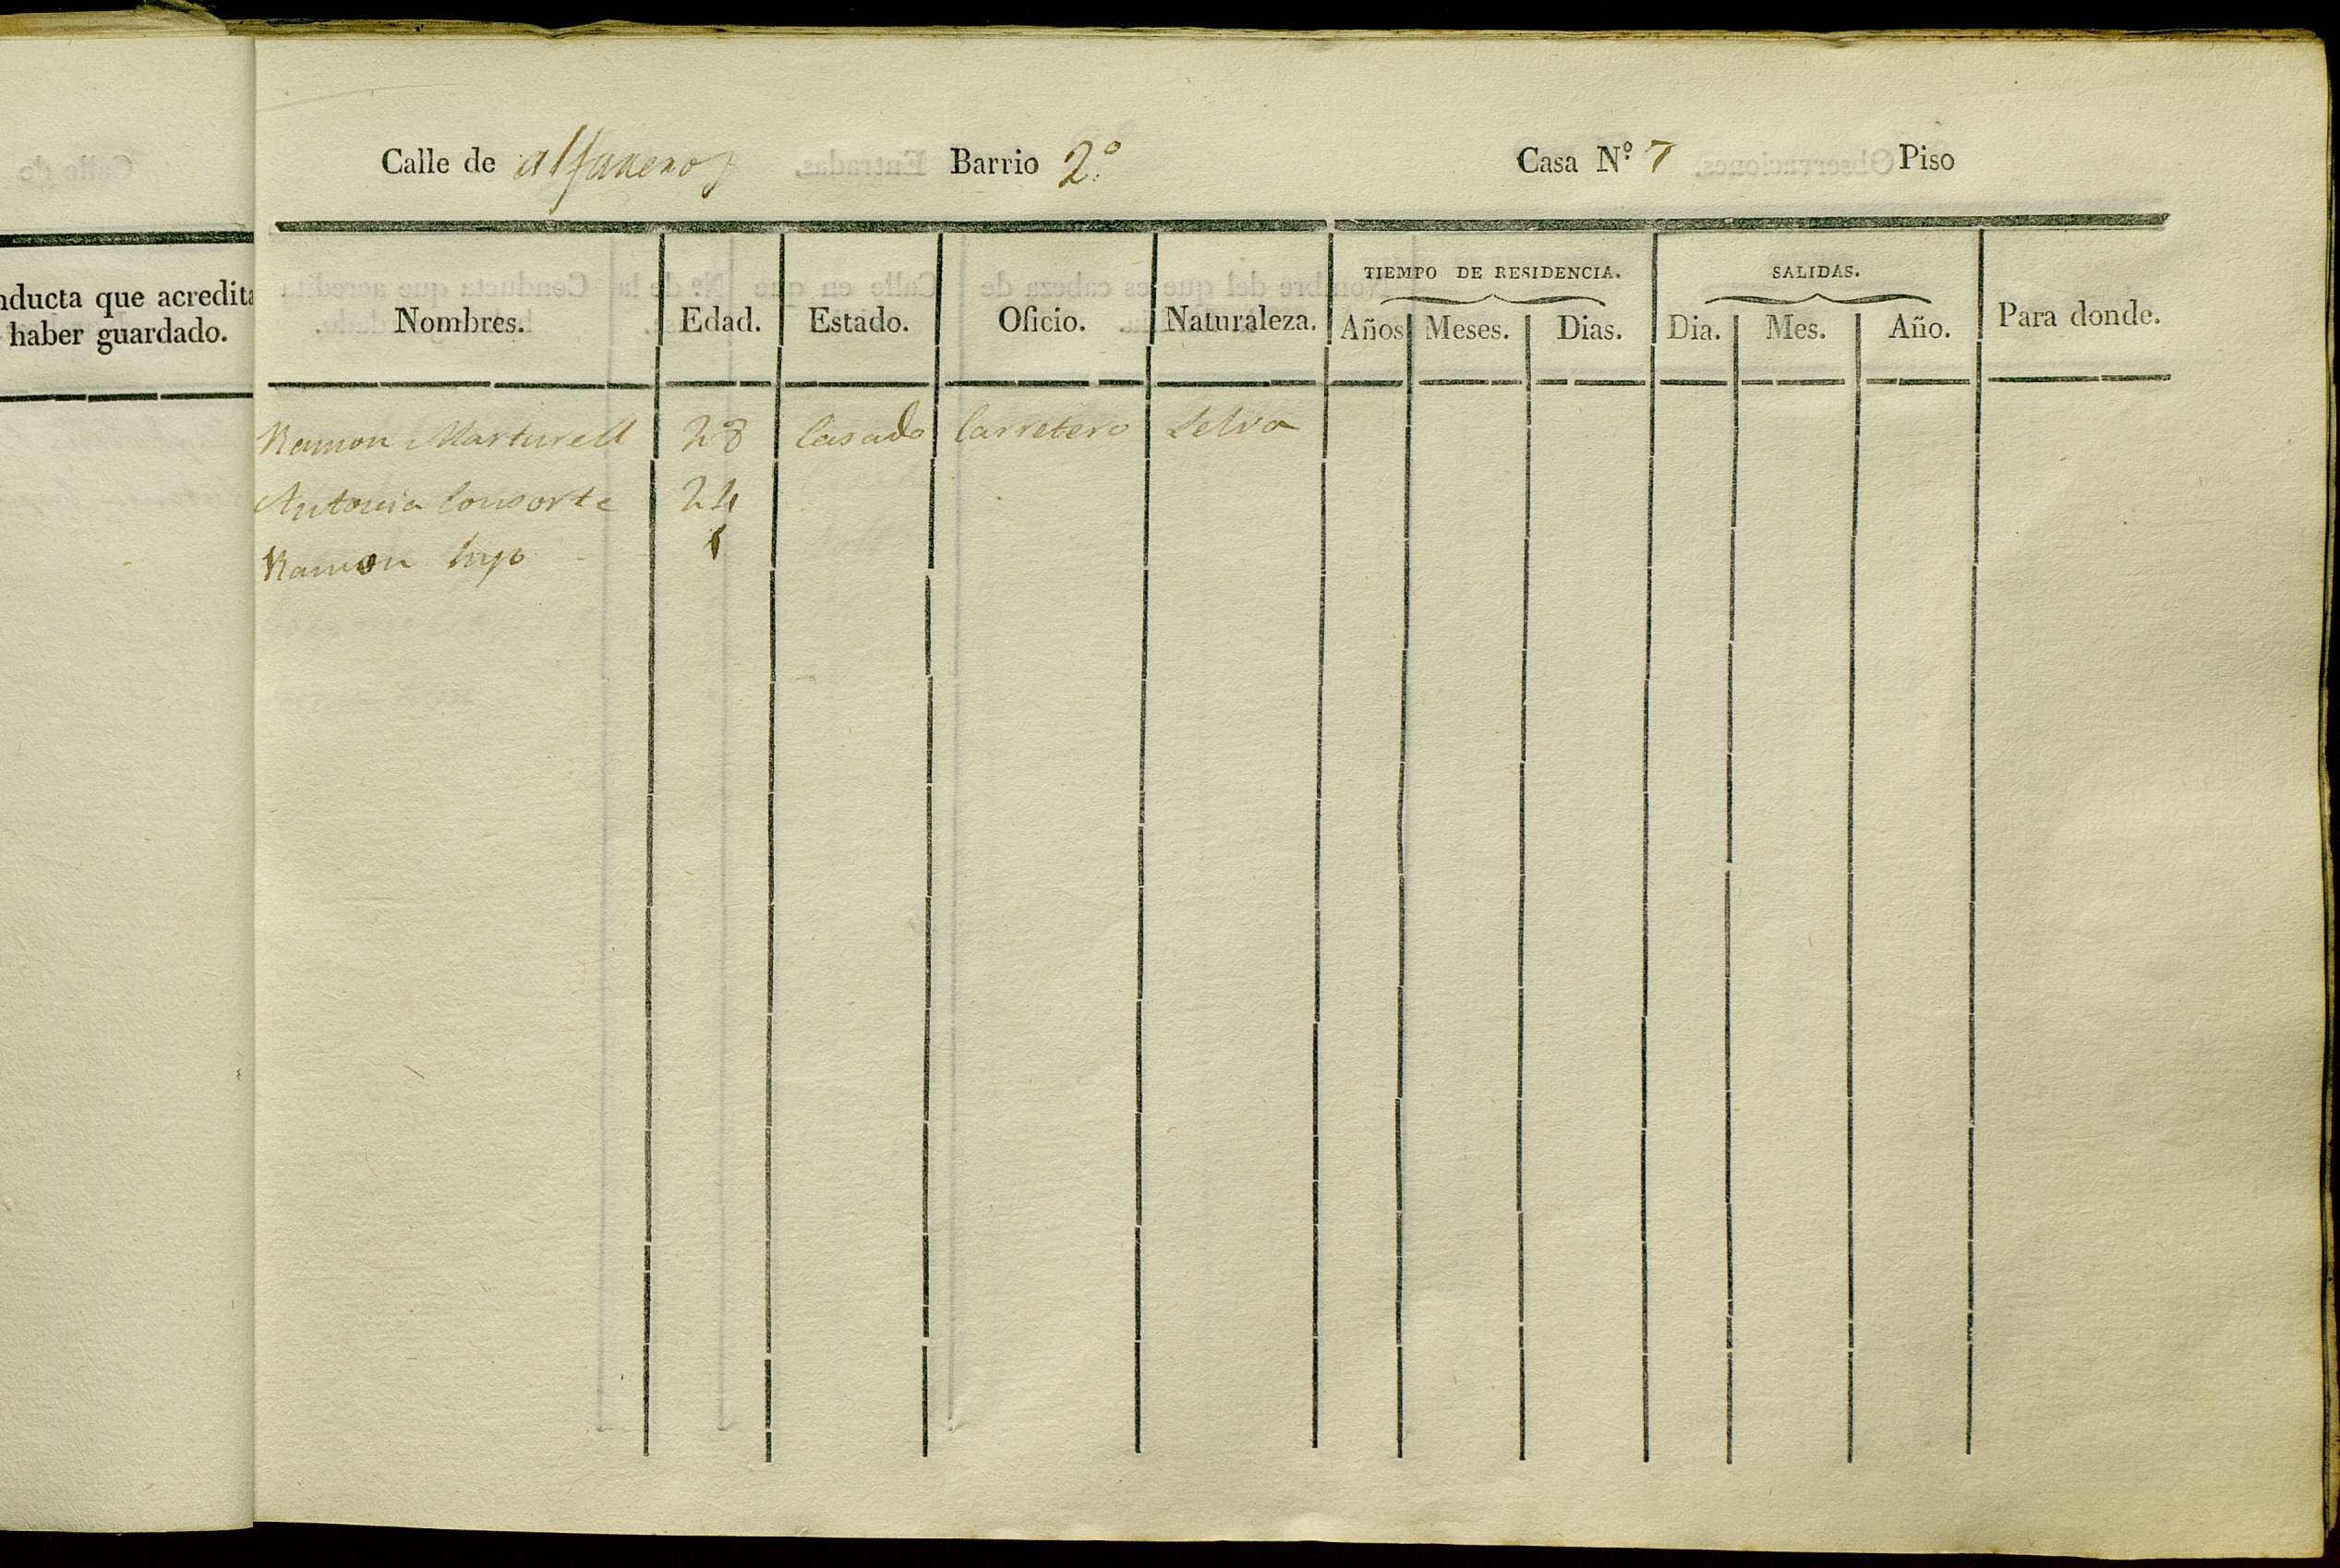 nducta que acredita
haber guardado.
Calle de alfareros Barrio 2.º Casa N.º 7 Piso
TIEMPO DE RESIDENCIA. SALIDAS.
Nombres. Edad. Estado. Oficio. Naturaleza. Años Meses. Dias. Dia. Mes. Año. Para donde.
Ramon Marturell 28 Casado Carretero Selva
Antonia Consorte 24
Ramon hijo 1